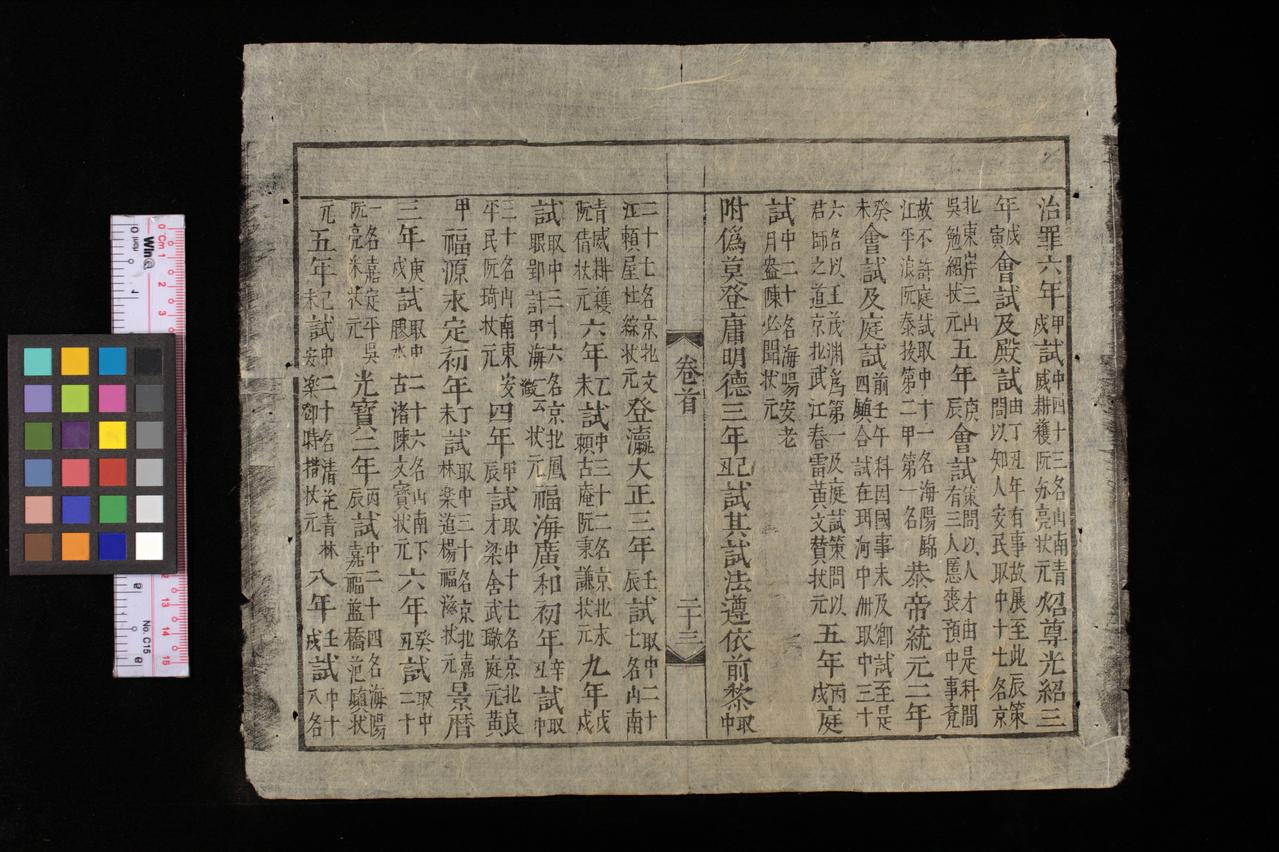 治罪六年甲戌試中四十三名山南青威耕穫阮亦亮状元炤尊光紹三
年戊寅會試及殿試由丁丑年有事故展至此辰策問以知人安民取中十七名京
北東岸三山吳勉紹状元五年庚辰會試策問以人才由是科間有三人匿喪預中事竟
故不許庭試取中十一名海陽錦江平浪阮泰拔第二甲第一名恭帝統元二年
癸未會試及庭試前壬午科因國事未及鄉試至是四鎮合試在珥河中洲取中三十
六名以王茂渊爲第一及庭試策問以君師之道京北武江春雷黄文賛状元五年丙戌庭
試中二十名海陽安老月盎陳必聞状元
附僞莫登庸明德三年己丑試其試法遵依前黎取中
卷首
二十三
二十七名京北文江賴屋杜綜状元登瀛大正三年壬辰試取中二十七名山南
青威耕穫阮倩状元六年乙未試中三十二名京北永頼古庵阮秉謙状元九年戊戌
試取中三十六名京北鳳眼郢計甲海状元福海廣和初年辛丑試取中
三十名山南東安平民阮琦状元四年甲辰試取中十七名京北良才梁舍武瞮庭元黄
甲福源永定初年丁未試取中三十名京北嘉林楽道楊福滋状元景曆
三年庚戌試取中二十六名山南下膠水古渚陳文寳状元六年癸丑試取中二十
一名嘉定平吳阮亮采状元光寳二年丙辰試中二十四名海陽嘉福藍橋范鎮状
元五年己未試中二十名清沱青林安楽鄧時措状元八年壬戌試中十八名